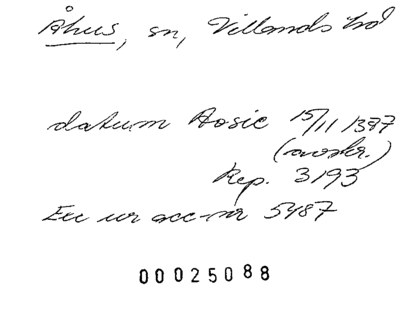 Åhus, sn, Villands hd
datum Aosie 15/11 1387
(avskr.)
Rep. 3193
Exc ur acc-nr 5487
00025088